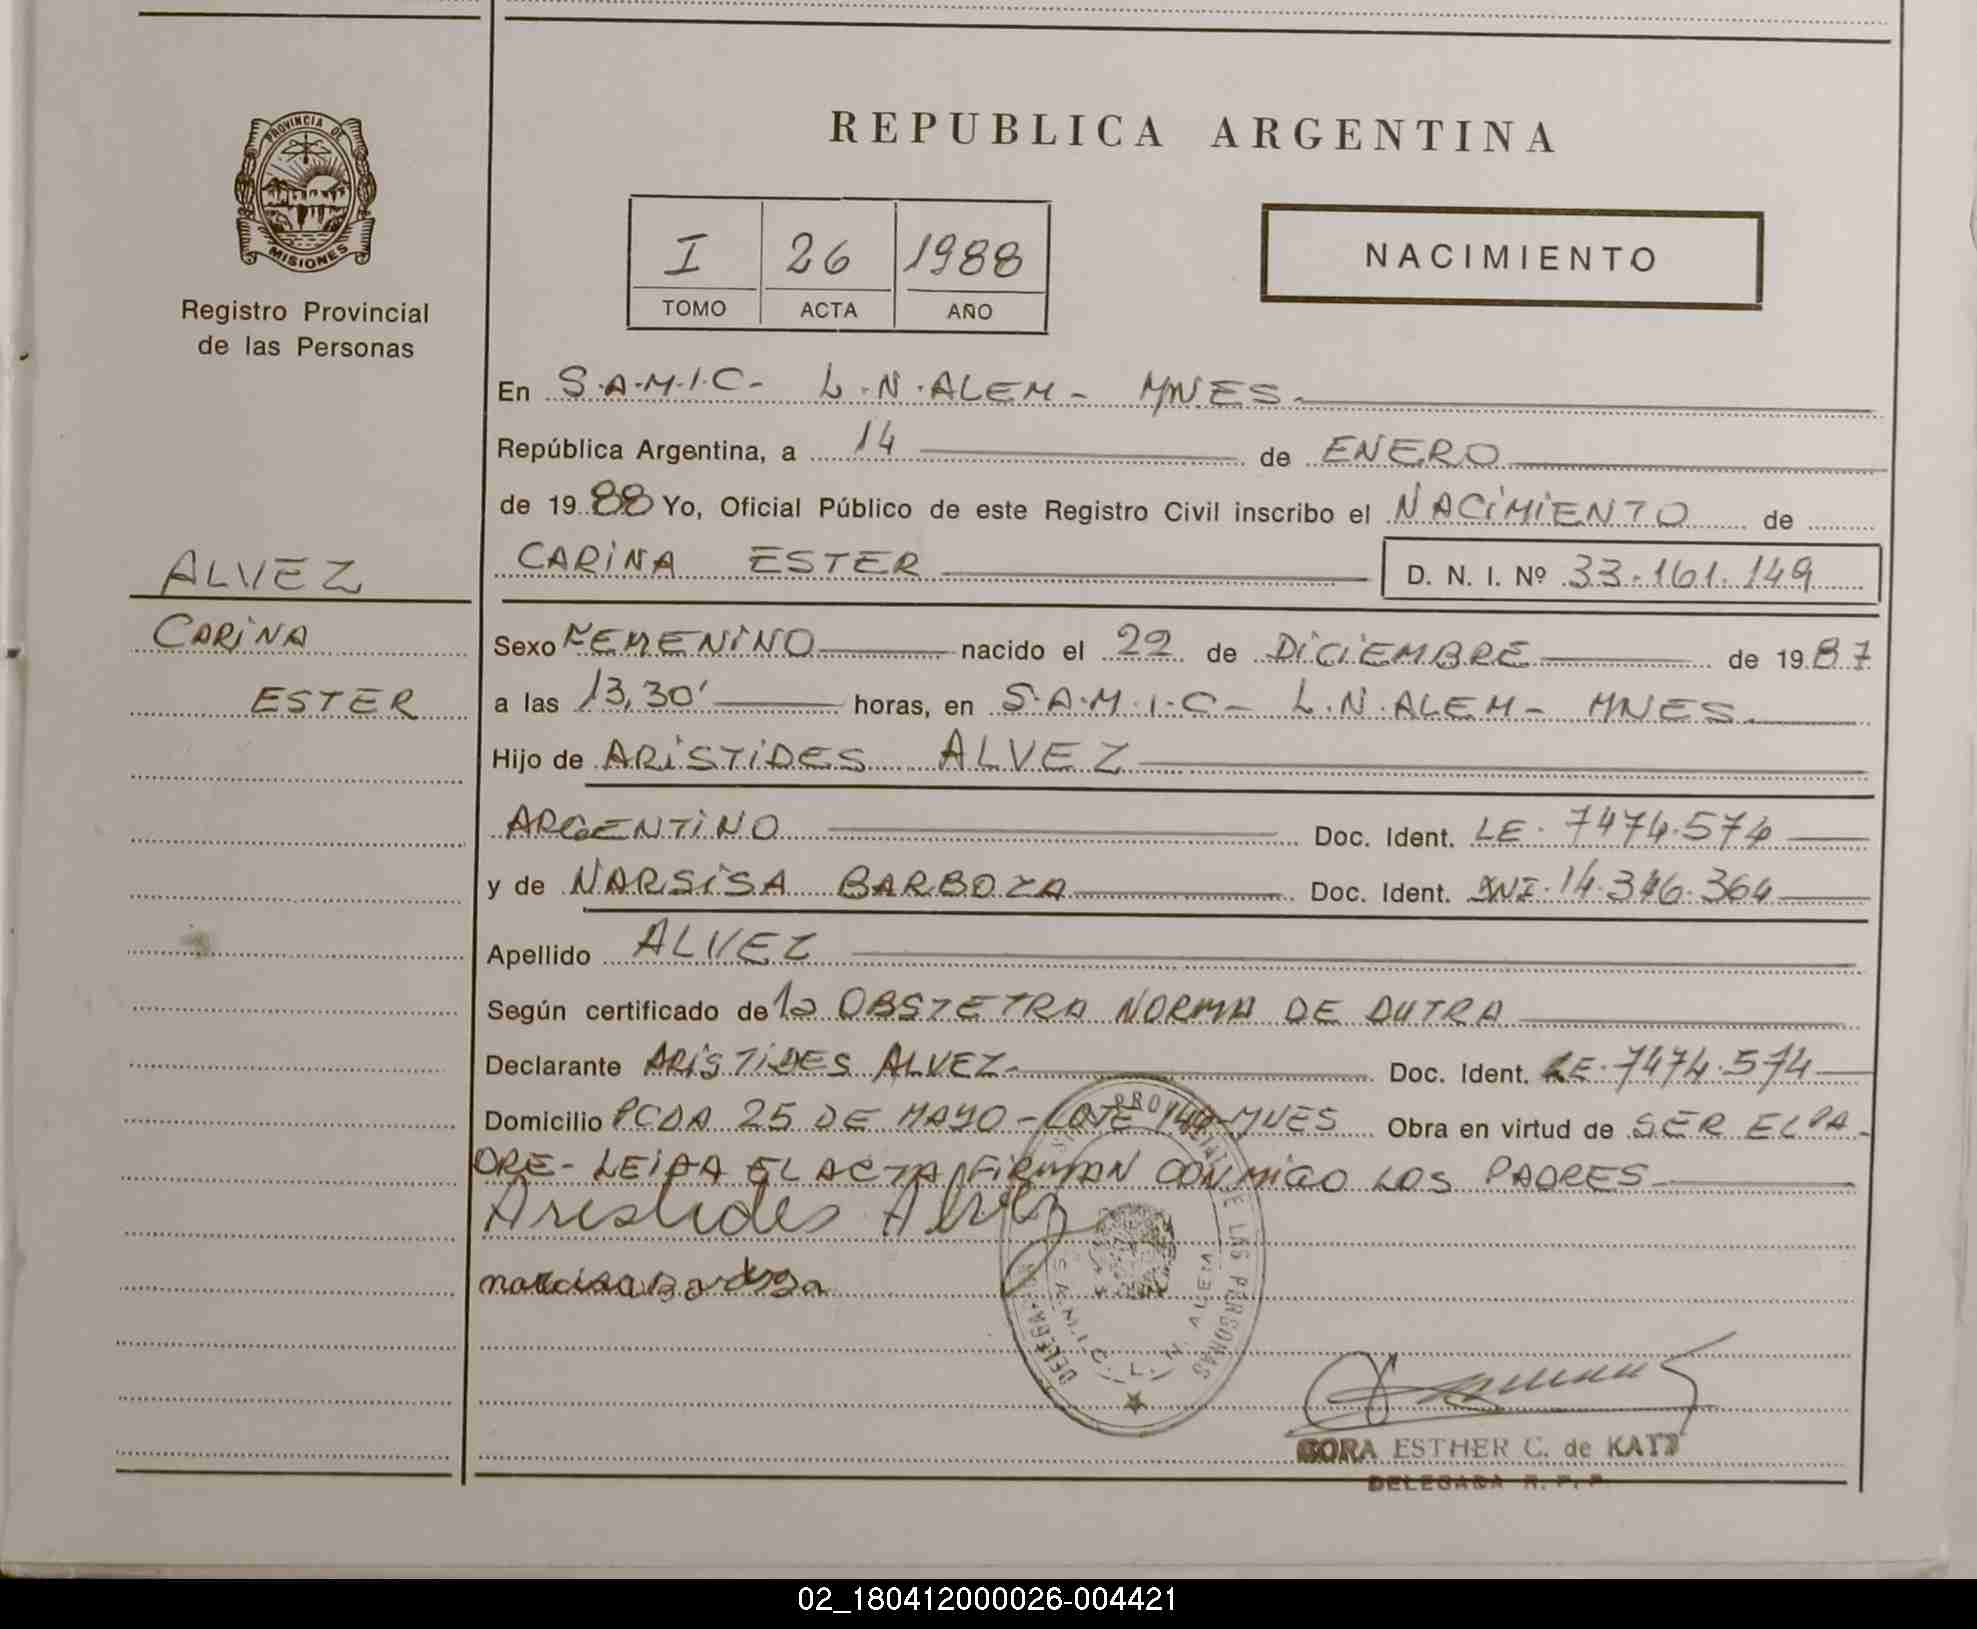 REPUBLICA ARGENTINA
PROVINCIA DE
MISIONES
Registro Provincial
de las Personas
I 26 1988
TOMO ACTA AÑO
NACIMIENTO
En S.A.M.I.C- L.N.ALEM- MNES.
República Argentina, a 14 de ENERO
de 1988 Yo, Oficial Público de este Registro Civil inscribo el NACIMIENTO de
CARINA ESTER D. N. I. Nº 33.161.149
ALVEZ
CARINA
ESTER
Sexo FEMENINO nacido el 22 de DICIEMBRE de 1987
a las 13,30' horas, en S.A.M.I.C- L.N.ALEM- MNES.
Hijo de ARISTIDES ALVEZ
ARGENTINO Doc. Ident. LE. 7474.574
y de NARSISA BARBOZA Doc. Ident. DNI.14.346.364
Apellido ALVEZ
Según certificado de la OBSTETRA NORMA DE DUTRA
Declarante ARISTIDES ALVEZ- Doc. Ident. LE.7474.574
Domicilio PCDA 25 DE MAYO-LOTE MNES Obra en virtud de SER EL PA-
DRE- LEIDA EL ACTA FIRMAN CONMIGO LOS PADRES
Aristides Alvez
DE LAS PERSONAS
S.A.M.I.C. L. N. ALEM
ESTHER C. de KATZ
DELEGADA R. P. P.
02_180412000026-004421